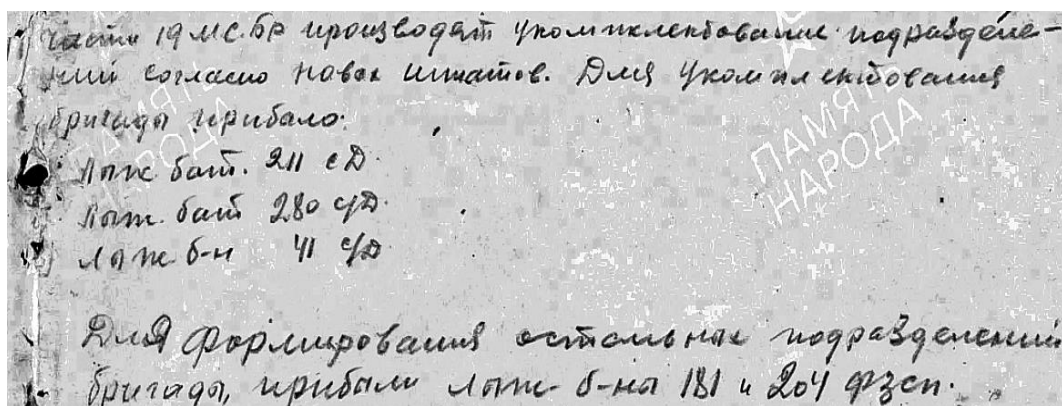 части 19 МС.БР производят укомплектование подразделе-
ний согласно новых штатов. Для укомплектования
бригады прибыло:
Лыж бат. 211 сД.
Лыж. бат 280 с/Д.
Лыж б-н 41 с/Д
Для формирования остальных подразделений
бригады, прибыли лыж- б-ны 181 и 204 ФЗСП.
ПАМЯТЬ
НАРОДА
ПАМЯТЬ
НАРОДА